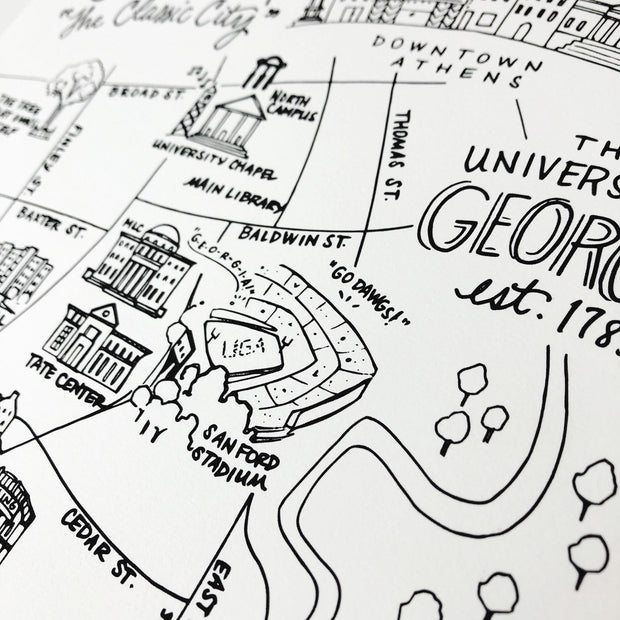 "The Classic City"
DOWNTOWN
ATHENS
BROAD ST.
NORTH
CAMPUS
THE TREE
THAT OWNS
UNIVERSITY CHAPEL
MAIN LIBRARY
THOMAS ST.
FINLEY ST.
BAXTER ST.
BALDWIN ST.
THE
UNIVERS
GEOR
est. 178
MLC
"G-E-O-R-G-I-A!"
"GO DAWGS!"
UGA
TATE CENTER
SANFORD
STADIUM
CEDAR ST.
EAST